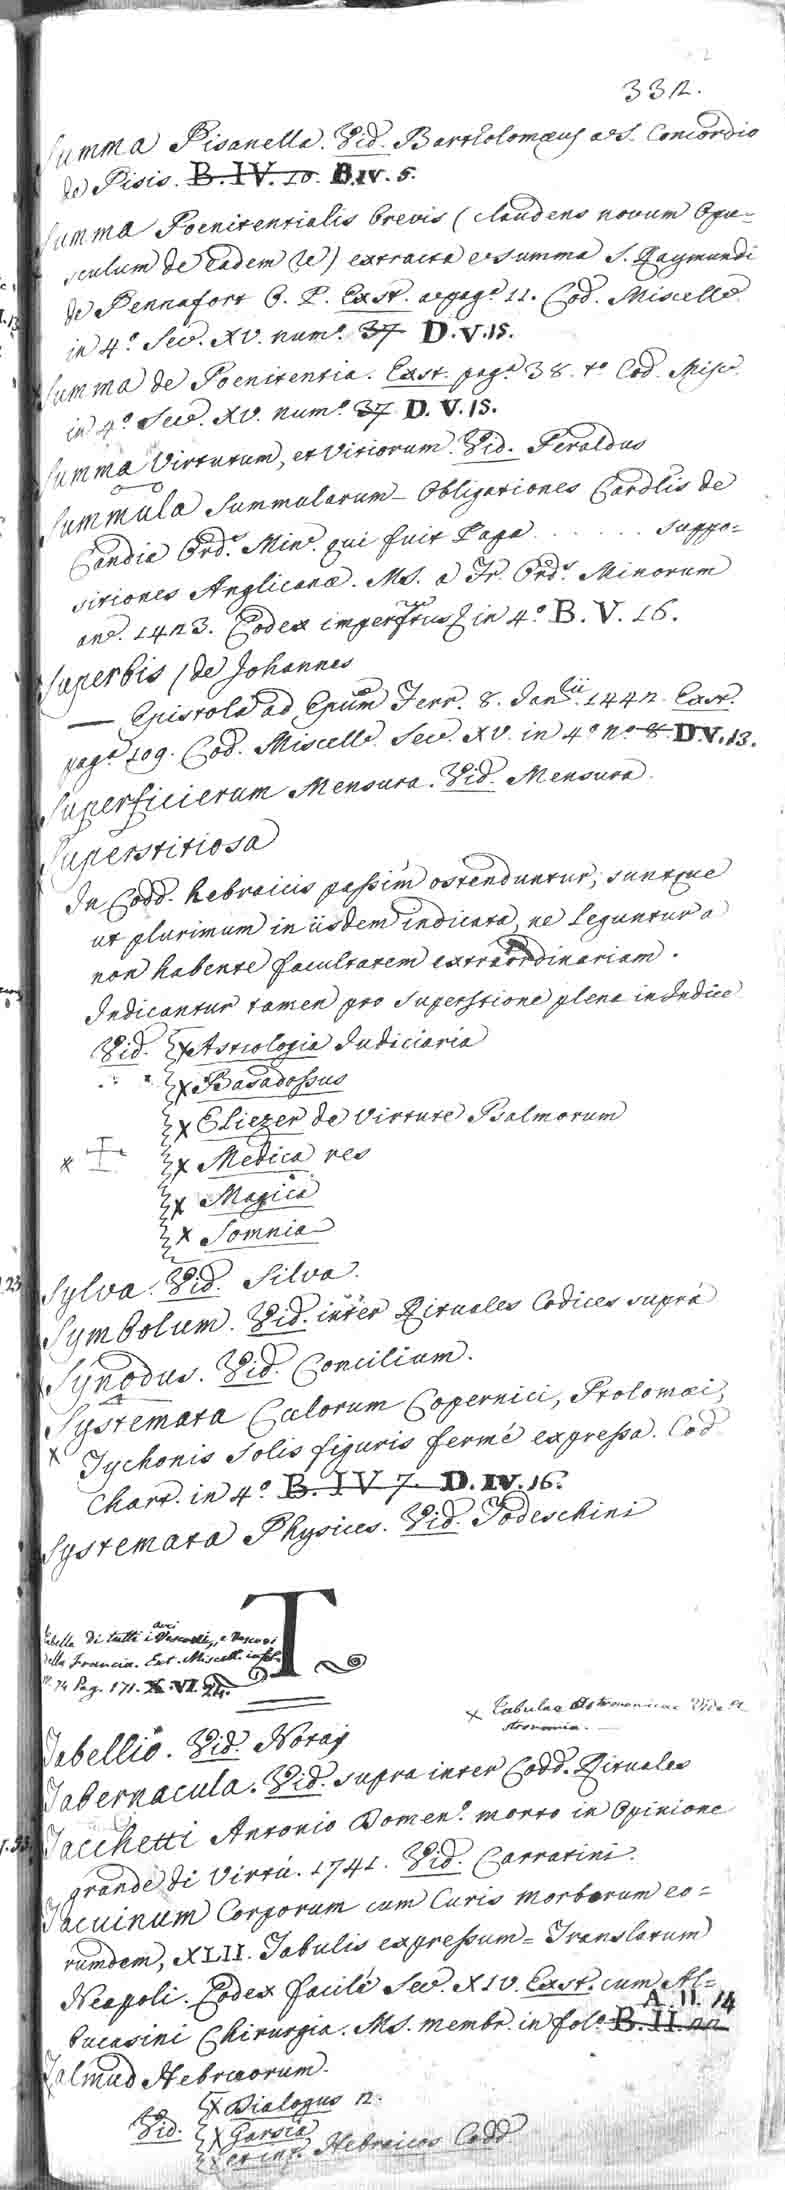 332.
Summa Pisanella. Vid. Bartholomæus a S. Concordio
de Pisis. B. IV. 10. B.IV. 5.
Summa Poenitentialis brevis (claudens novum Opu=
sculum de eadem re) extracta e summa S. Raymundi
de Pennafort O. P. Exst. a pag.ª 11. Cod. Miscell.
in 4.º Sec. XV. num.º 37 D.V.15.
Summa de Poenitentia. Exst. pag.ª 38. tº Cod. Misc.
in 4.º Sec. XV. num.º 37 D. V. 15.
Summa Virtutum, et Vitiorum. Vid. Peraldus
Summula Summularum _ Obligationes Cardlis de
Candia Ord.s Min. qui fuit Papa . . . . . . . suppo=
sitiones Anglicanæ. MS. a Fr. Ord.s Minorum
an. 1423. Codex imperftus in 4.º B. V. 16.
Superbis (de Johannes
— Epistola ad Epum Ferr. 8. Jan.ii 1442. Exst.
pag.ª 109. Cod. Miscell. Sec. XV. in 4.º nº 8. D.V.13.
Superficierum Mensura. Vid. Mensura.
Superstitiosa
In Codd. hebraicis passim ostenduntur, suntque
ut plurimum in iisdem indicata, ne leguntur a
non habente facultatem extraordinariam.
Indicantur tamen pro superstione plena in Indice
Vid. x Astrologia Judiciaria
x Basadossus
x Eliezer de virtute Psalmorum
x x Medica res
x Magica
x Somnia
Sylva. Vid. Silva.
Symbolum. Vid. inter Rituales Codices suprà
Synodus. Vid. Concilium.
Systemata Cælorum Copernici, Ptolomæi,
x Tychonis solis figuris fermè expressa. Cod.
Chart. in 4.º B. IV 7. D. IV. 16.
Systemata Physices. Vid. Todeschini
T.
Tabella di tutti i Vescovati, e Vescovi
della Francia. Ext. Miscell. in fol.
nº 74 Pag. 171. X. VI. 24.
x Tabulae Astronomicae Vide A
stronomia. —
Tabellio. Vid. Notaj
Tabernacula. Vid. supra inter Codd. Rituales
Tacchetti Antonio Domen.º morto in Opinione
grande di Virtù. 1741. Vid. Carrarini.
Tacuinum Corporum cum Curis morborum eo=
rumdem, XLII. Tabulis expressum = Translatum
Neapoli. Codex facilè Sec. XIV. Exst. cum Al=
bucasini Chirurgia. MS. membr. in fol.º B. II. 22 A. II. 14
Talmud Hebræorum.
Vid. x Dialogus 2.
x Garsia
x et int. Hebraicos Codd.